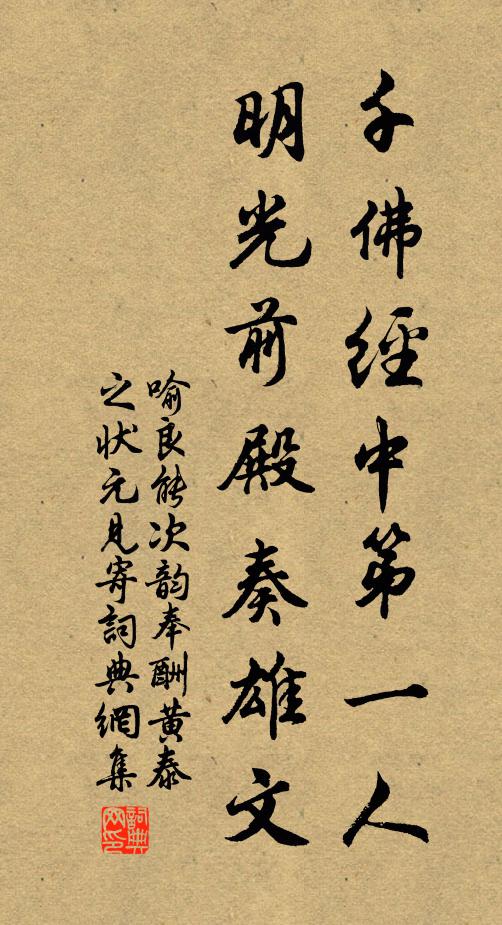 千佛經中第一人
明光前殿奏雄文
喻良能次韵奉酬黄泰
之狀元見寄詞典網集
詞典网印